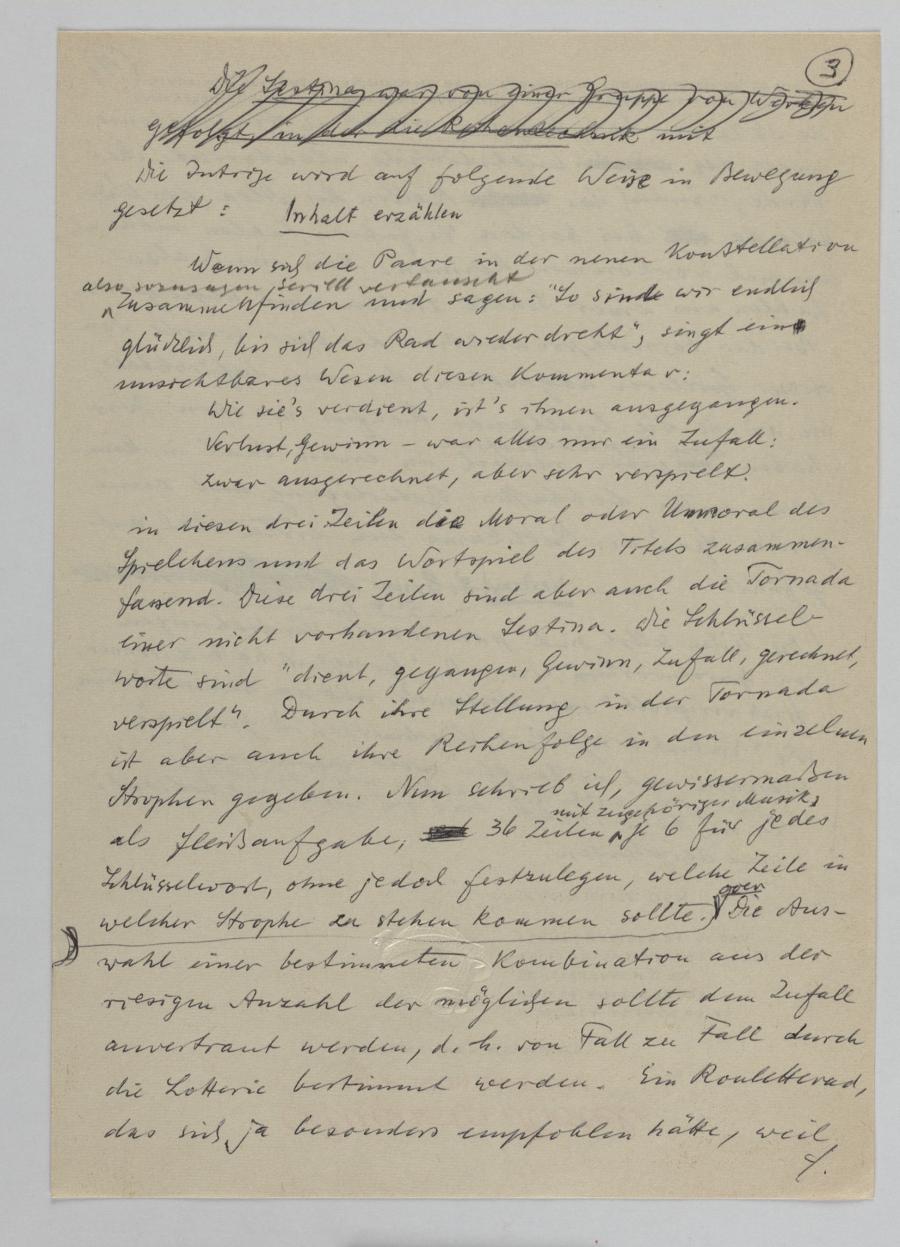 3
Die Sestina war von einer Gruppe von Werken
gefolgt, in der die Reihentechnik mit
Die Intrige wird auf folgende Weise in Bewegung
gesetzt: Inhalt erzählen
Wenn sich die Paare in der neuen Konstellation
also sozusagen seriell vertauscht
zusammenfinden und sagen: "So sind wir endlich
glücklich, bis sich das Rad wieder dreht", singt ein
unsichtbares Wesen diesen Kommentar:
Wie sie's verdient, ist's ihnen ausgegangen.
Verlust, Gewinn – war alles nur ein Zufall:
zwar ausgerechnet, aber sehr verspielt.
in diesen drei Zeilen die Moral oder Unmoral des
Spielchens und das Wortspiel des Titels zusammen-
fassend. Diese drei Zeilen sind aber auch die Tornada
einer nicht vorhandenen Sestina. Die Schlüssel-
worte sind "dient, gegangen, Gewinn, Zufall, gerechnet,
verspielt". Durch ihre Stellung in der Tornada
ist aber auch ihre Reihenfolge in den einzelnen
Strophen gegeben. Nun schrieb ich, gewissermaßen
mit zugehöriger Musik,
als Fleißaufgabe, 36 Zeilen je 6 für jedes
Schlüsselwort, ohne jedoch festzulegen, welche Zeile in
welcher Strophe zu stehen kommen sollte. Die Aus-
wahl einer bestimmten Kombination aus der
riesigen Anzahl der möglichen sollte dem Zufall
anvertraut werden, d. h. von Fall zu Fall durch
die Lotterie bestimmt werden. Ein Rouletterad,
das sich ja besonders empfohlen hätte, weil